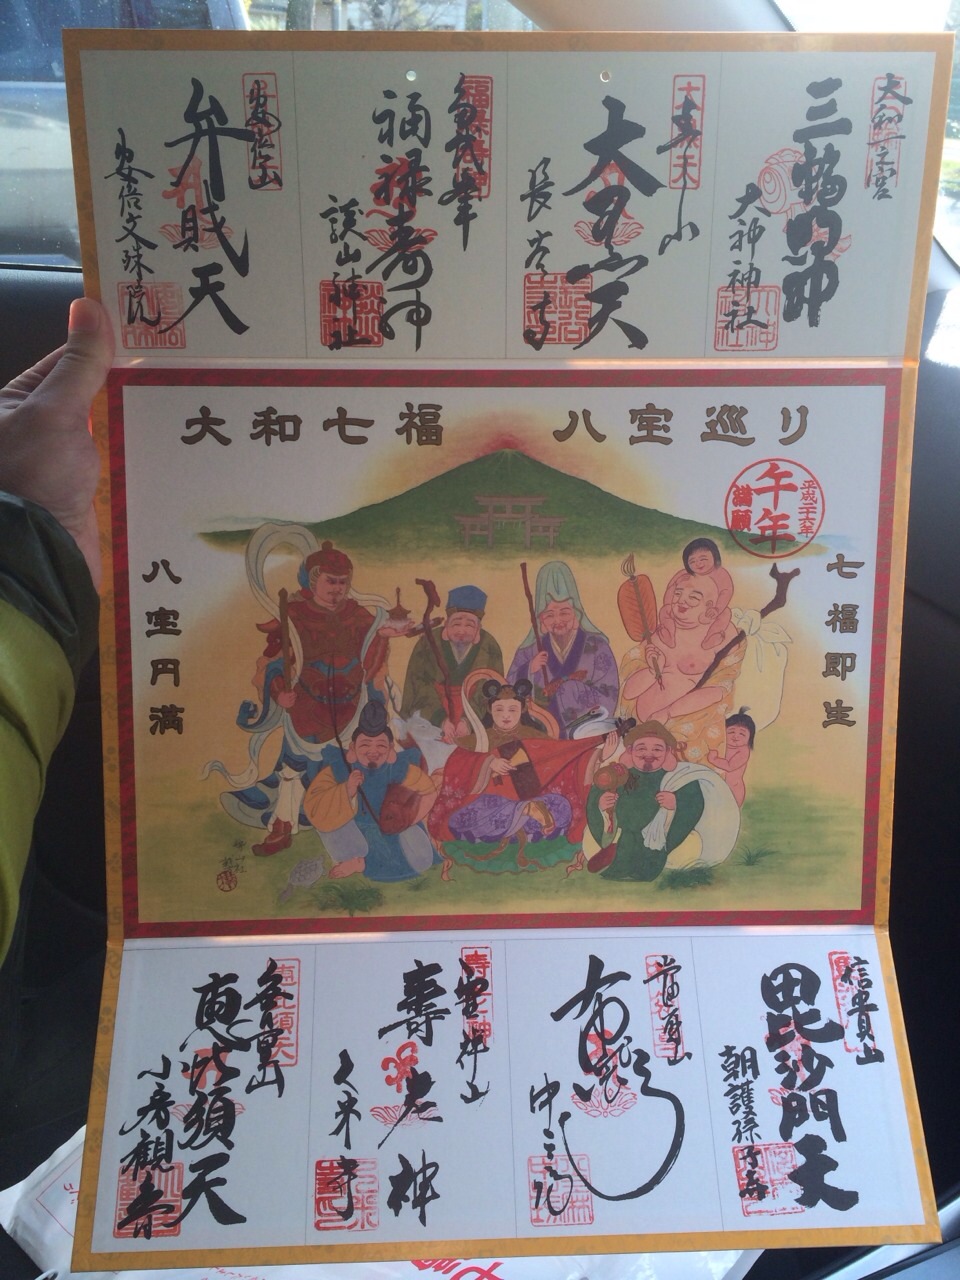 大和一之宮
三輪明神
大神神社
大黒天
長谷寺
多武峯
福禄寿神
談山神社
安倍山
弁財天
安倍文殊院
大和七福 八宝巡り
平成二十六年
午年
満願
七福即生
八宝円満
信貴山
毘沙門天
朝護孫子寺
布袋
寿老神
久米寺
恵比須天
小房観音